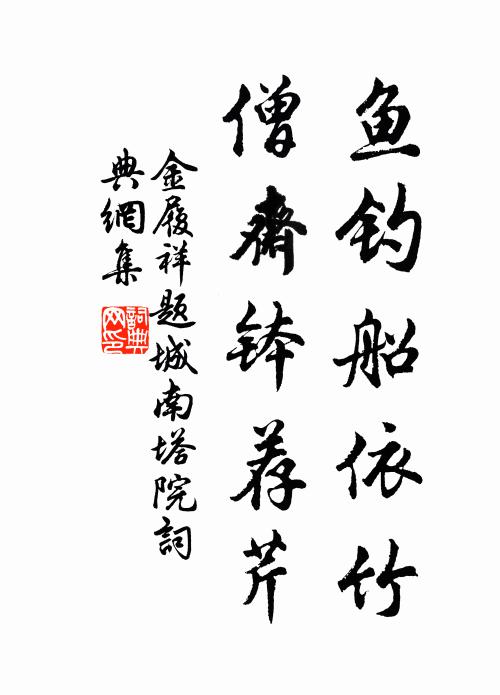 鱼钓船依竹
僧斋钵荐芹
金履祥题城南塔院詞
典網集
詞典网印